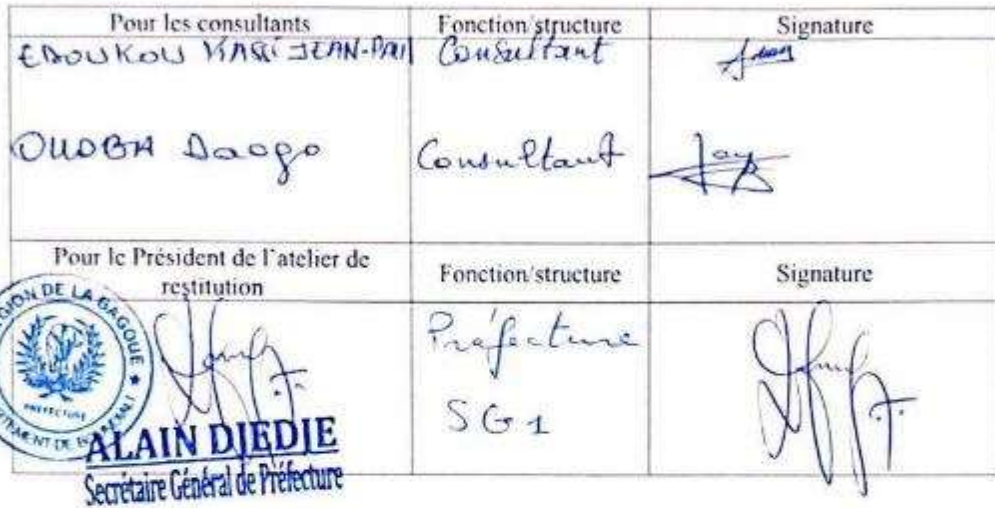 Pour les consultants Fonction/structure Signature
EBOUKOU JEAN-PAUL Consultant
OUOBA Daogo Consultant
Pour le Président de l'atelier de restitution Fonction/structure Signature
REGION DE LA BAGOUE
PREFECTURE
Préfecture
SG1
ALAIN DJEDJE
Secrétaire Général de Préfecture